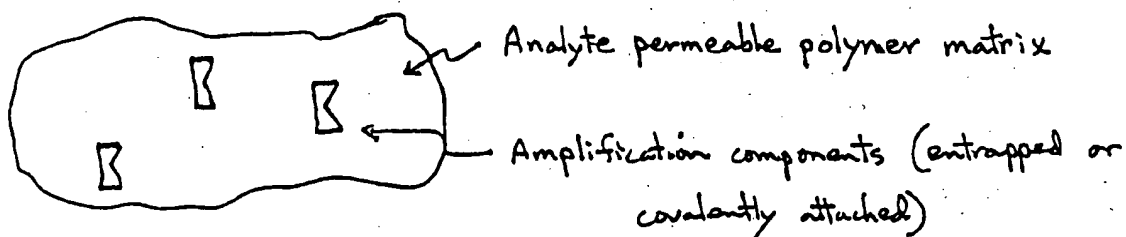 Analyte permeable polymer matrix
Amplification components (entrapped or
covalently attached)